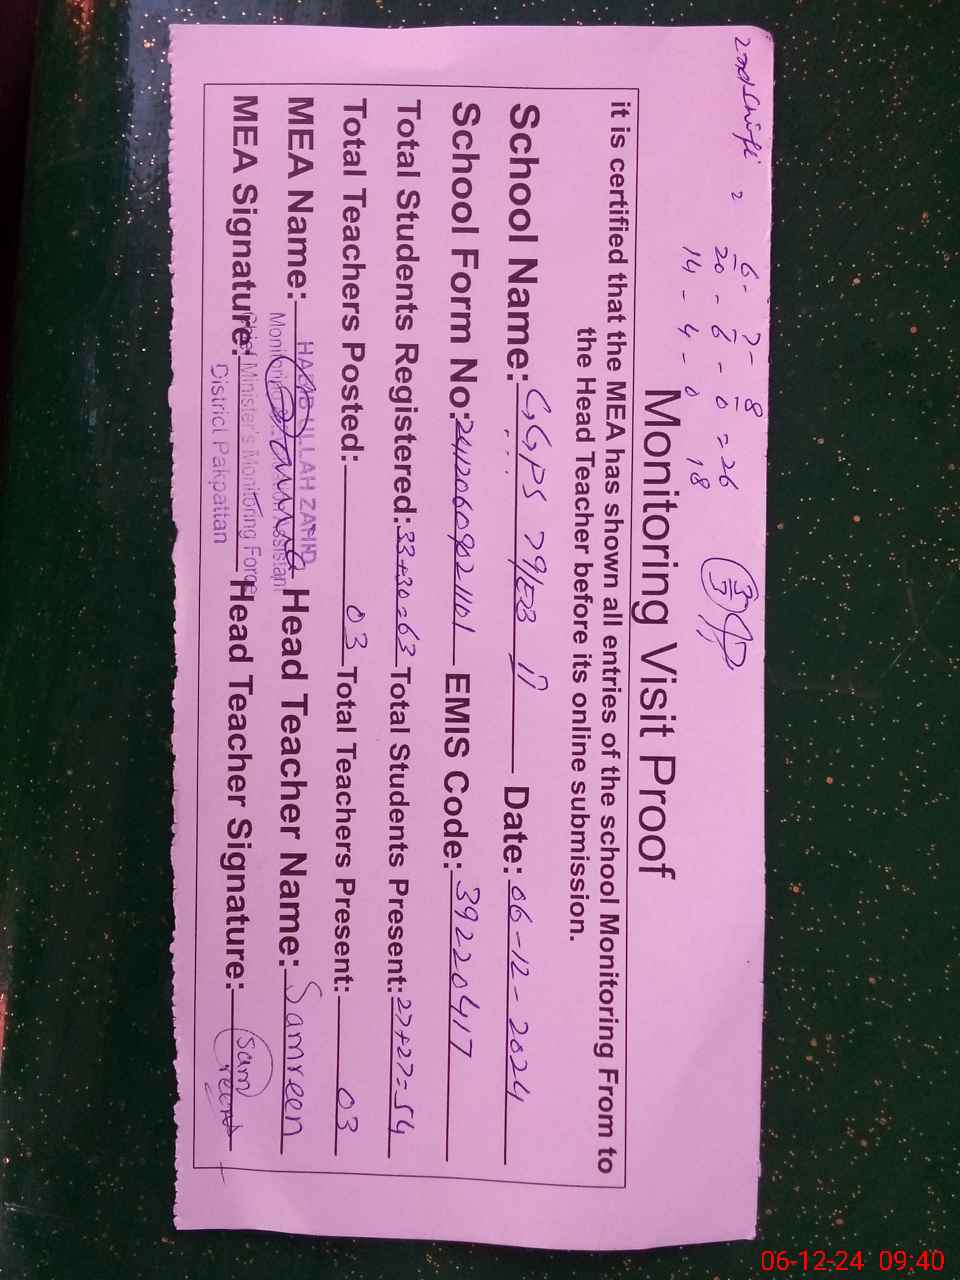 2nd Shift 2
6- 7- 8
20 - 6 - 0 = 26
14 - 4 - 0 18
3/3
Monitoring Visit Proof
it is certified that the MEA has shown all entries of the school Monitoring From to
the Head Teacher before its online submission.
School Name: GGPS 79/EB Date: 06-12-2024
School Form No: 2412060921101 EMIS Code: 39220417
Total Students Registered: 33+30=63 Total Students Present: 27+27=54
Total Teachers Posted: 03 Total Teachers Present: 03
MEA Name: Head Teacher Name: Samreen
ULLAH ZAHID
Monitoring Assistant
MEA Signature: Head Teacher Signature: Samreen
Chief Minister's Monitoring Force
District Pakpattan
06-12-24 09:40